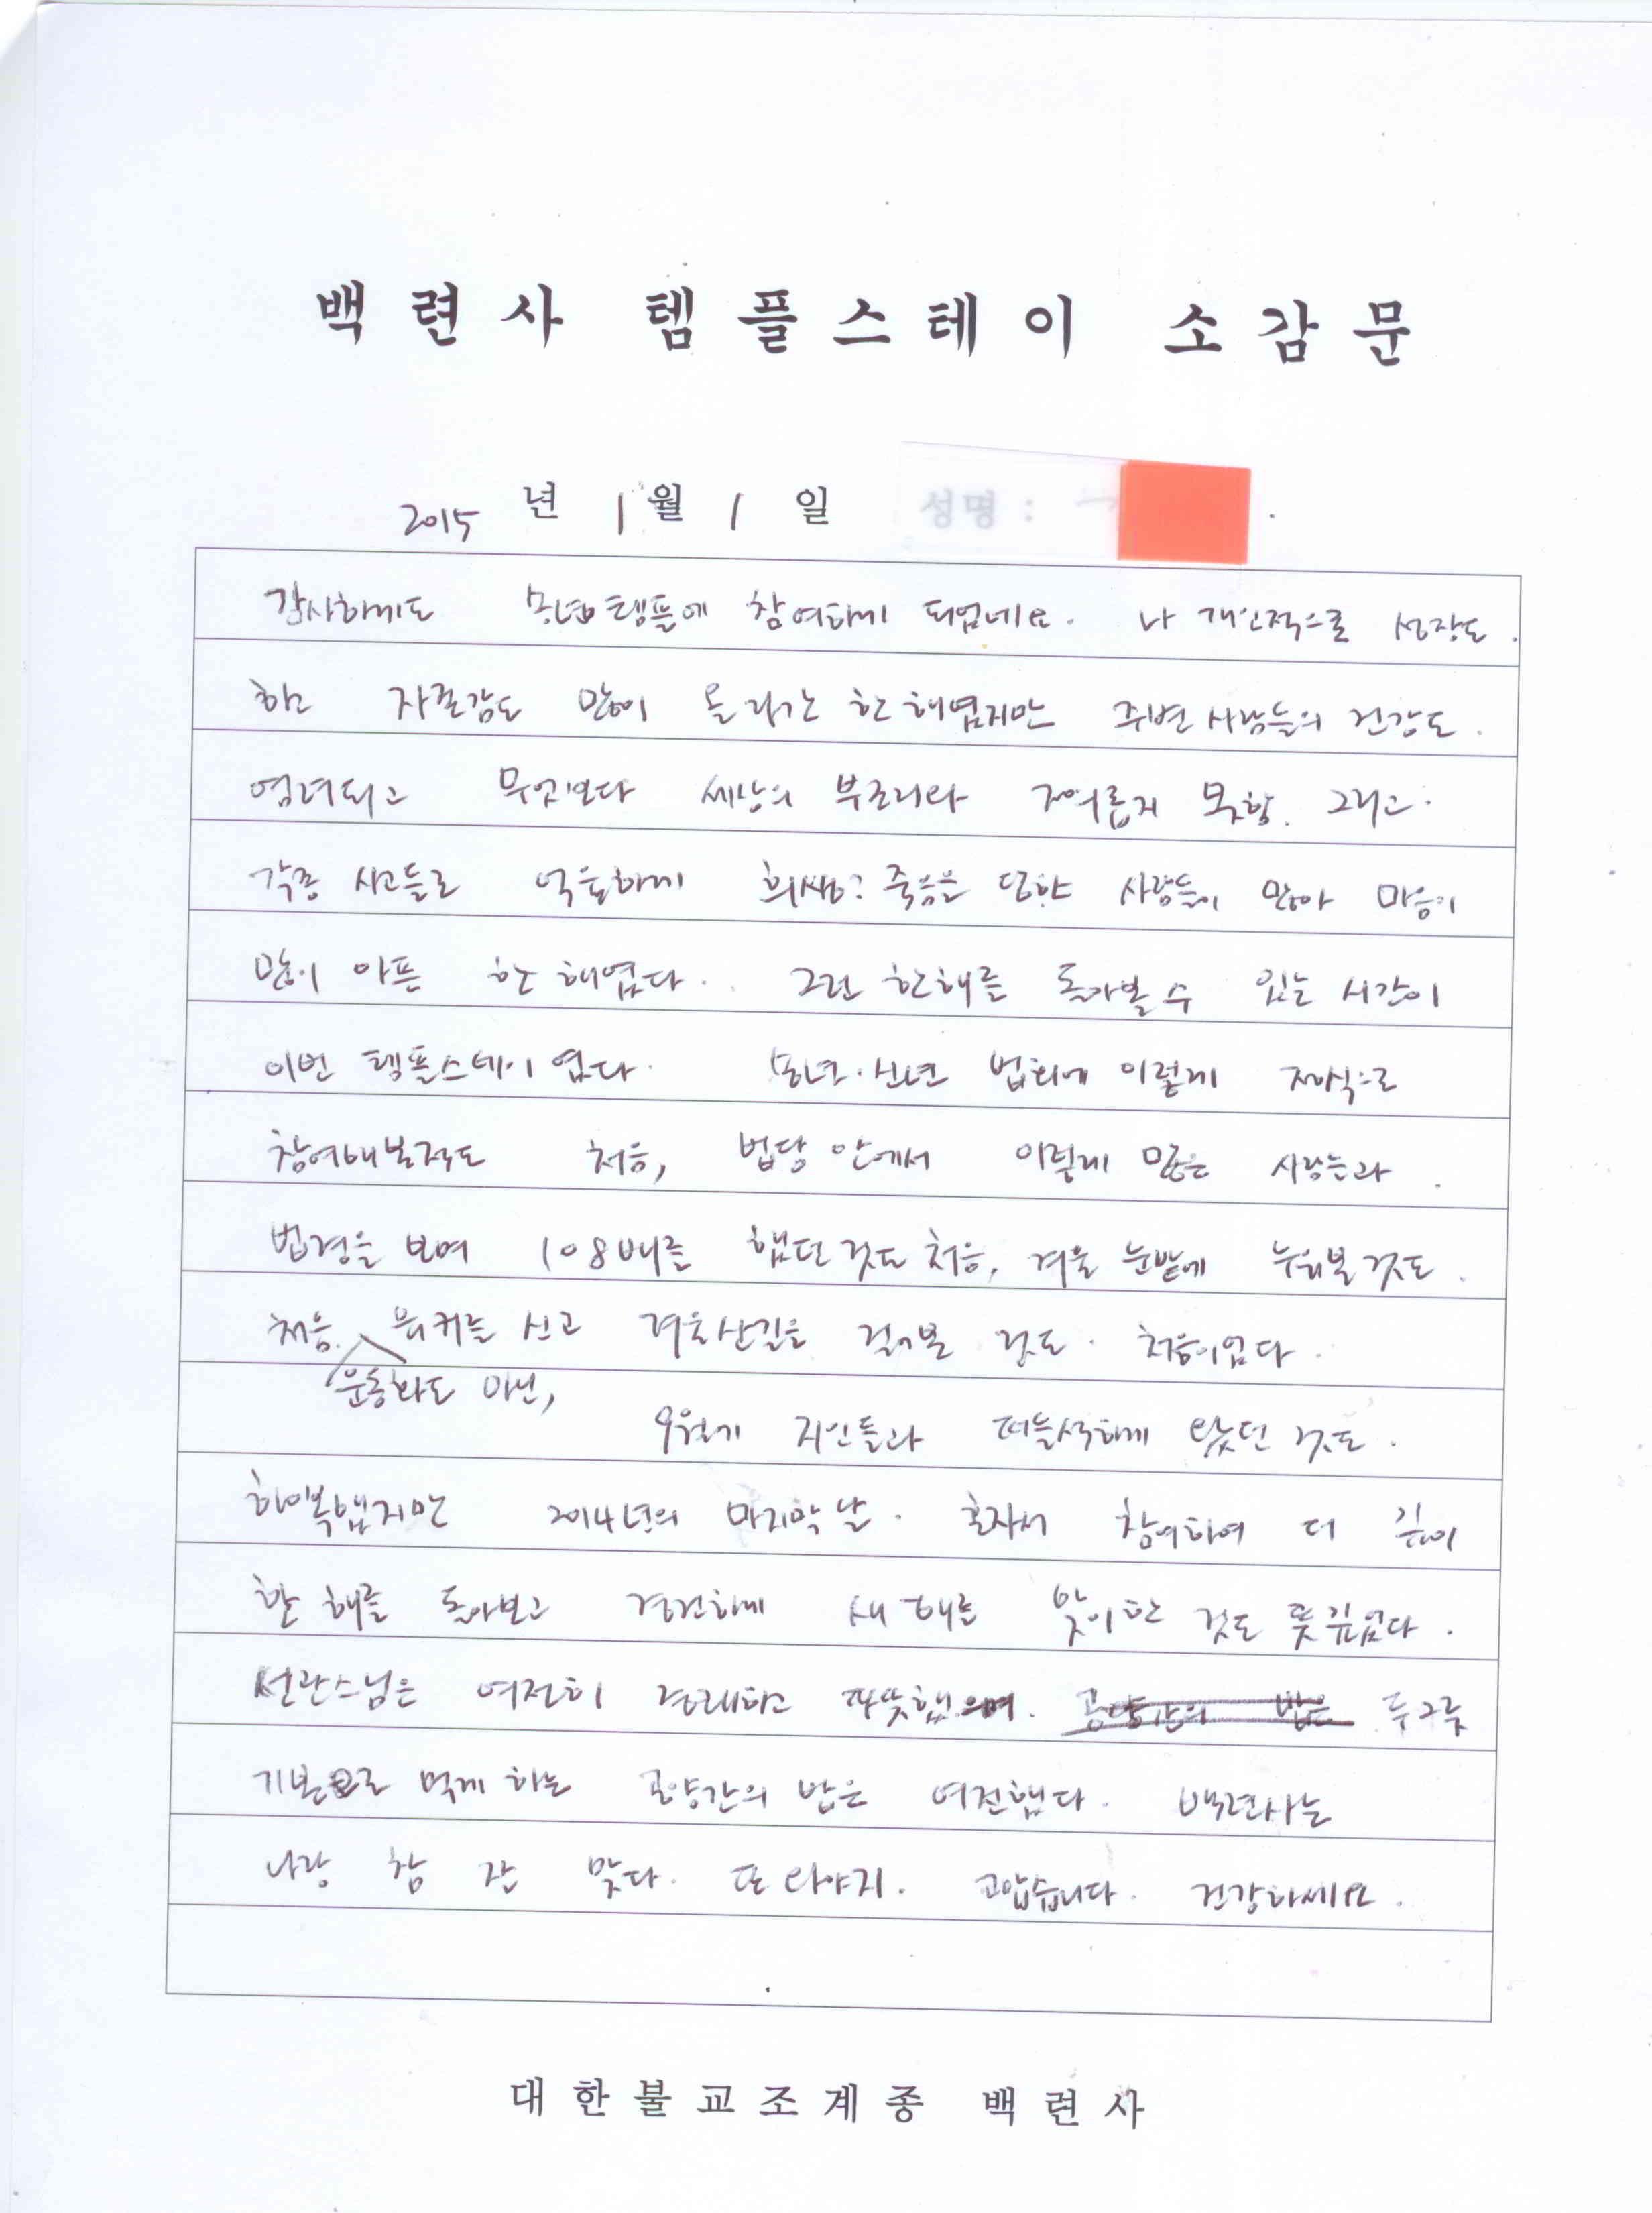 백련사 템플스테이 소감문
2015 년 1 월 1 일 성명 :
감사하게도 송년템플에 참여하게 되었네요. 나 개인적으로 성장도
하고 자존감도 많이 올라간 한 해였지만 주변 사람들의 건강도
염려되고 무엇보다 세상의 부조리와 정의롭지 못함. 그리고
각종 사고들로 억울하게 희생· 죽음을 당한 사람들이 많아 마음이
많이 아픈 한 해였다. 그런 한해를 돌아볼 수 있는 시간이
이번 템플스테이였다. 송년·신년 법회에 이렇게 정식으로
참여해본적도 처음, 법당 안에서 이렇게 많은 사람들과
법경을 보며 108배를 했던 것도 처음, 겨울 눈밭에 누워본 것도
처음. 워커를 신고 겨울산길을 걸어본 것도 처음이었다.
운동화도 아닌,
9월에 지인들과 떠들석하게 왔던 것도
행복했지만 2014년의 마지막 날. 혼자서 참여하여 더 깊이
한 해를 돌아보고 경건하게 새해를 맞이한 것도 뜻깊었다.
선관스님은 여전히 경쾌하고 따뜻했으며. 공양간의 밥은 두그릇
기본으로 먹게 하는 공양간의 밥은 여전했다. 백련사는
나랑 참 잘 맞다. 또 와야지. 고맙습니다. 건강하세요.
대한불교조계종 백련사